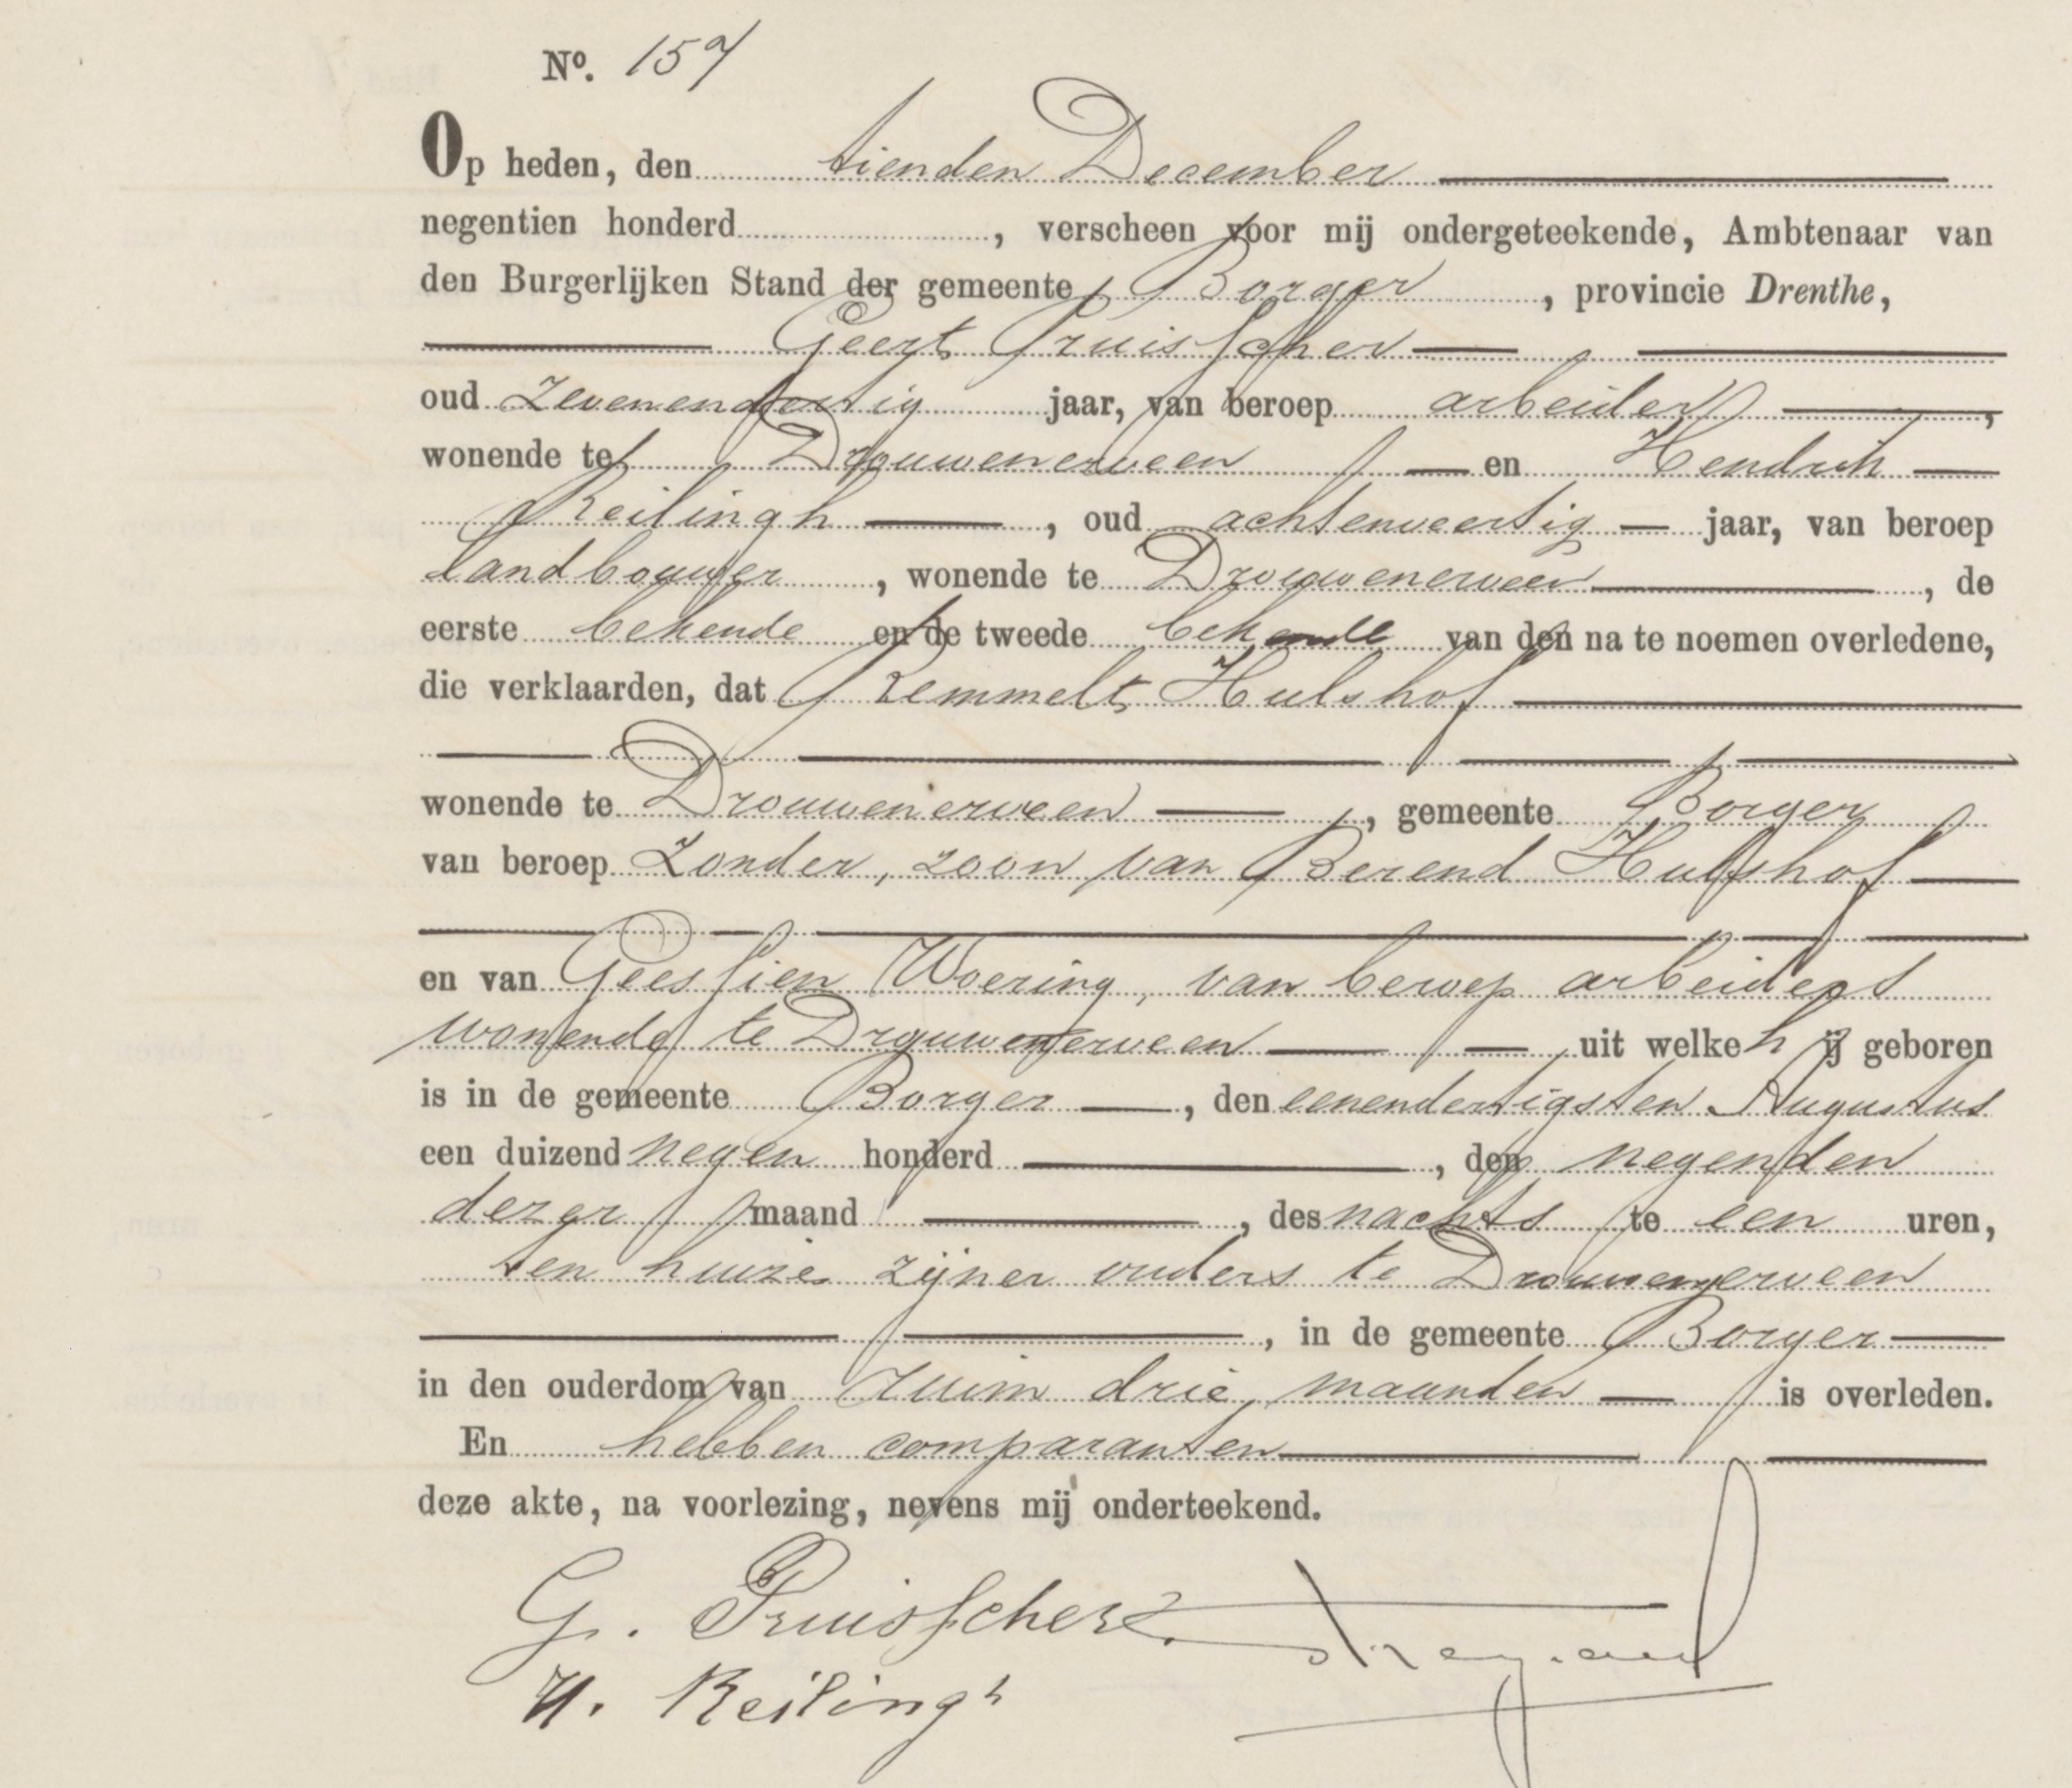 No. 157
Op heden, den tienden December
negentien honderd, verscheen voor mij ondergeteekende, Ambtenaar van
den Burgerlijken Stand der gemeente Borger, provincie Drenthe,
Geert Pruisscher
oud zevenendertig jaar, van beroep arbeider,
wonende te Drouwenerveen en Hendrik
Reilingh, oud achtenveertig jaar, van beroep
landbouwer, wonende te Drouwenerveen, de
eerste bekende en de tweede bekende van den na te noemen overledene,
die verklaarden, dat Remmelt Hulshof
wonende te Drouwenerveen, gemeente Borger
van beroep Zonder, zoon van Berend Hulshof
en van Geessien Woering, van beroep arbeiders
wonende te Drouwenerveen uit welke hij geboren
is in de gemeente Borger, den eenendertigsten Augustus
een duizend negen honderd, den negenden
dezer maand, des nachts te een uren,
ten huize zijner ouders te Drouwenerveen
, in de gemeente Borger
in den ouderdom van ruim drie maanden is overleden.
En hebben comparanten
deze akte, na voorlezing, nevens mij onderteekend.
G. Pruisscher
H. Reilingh